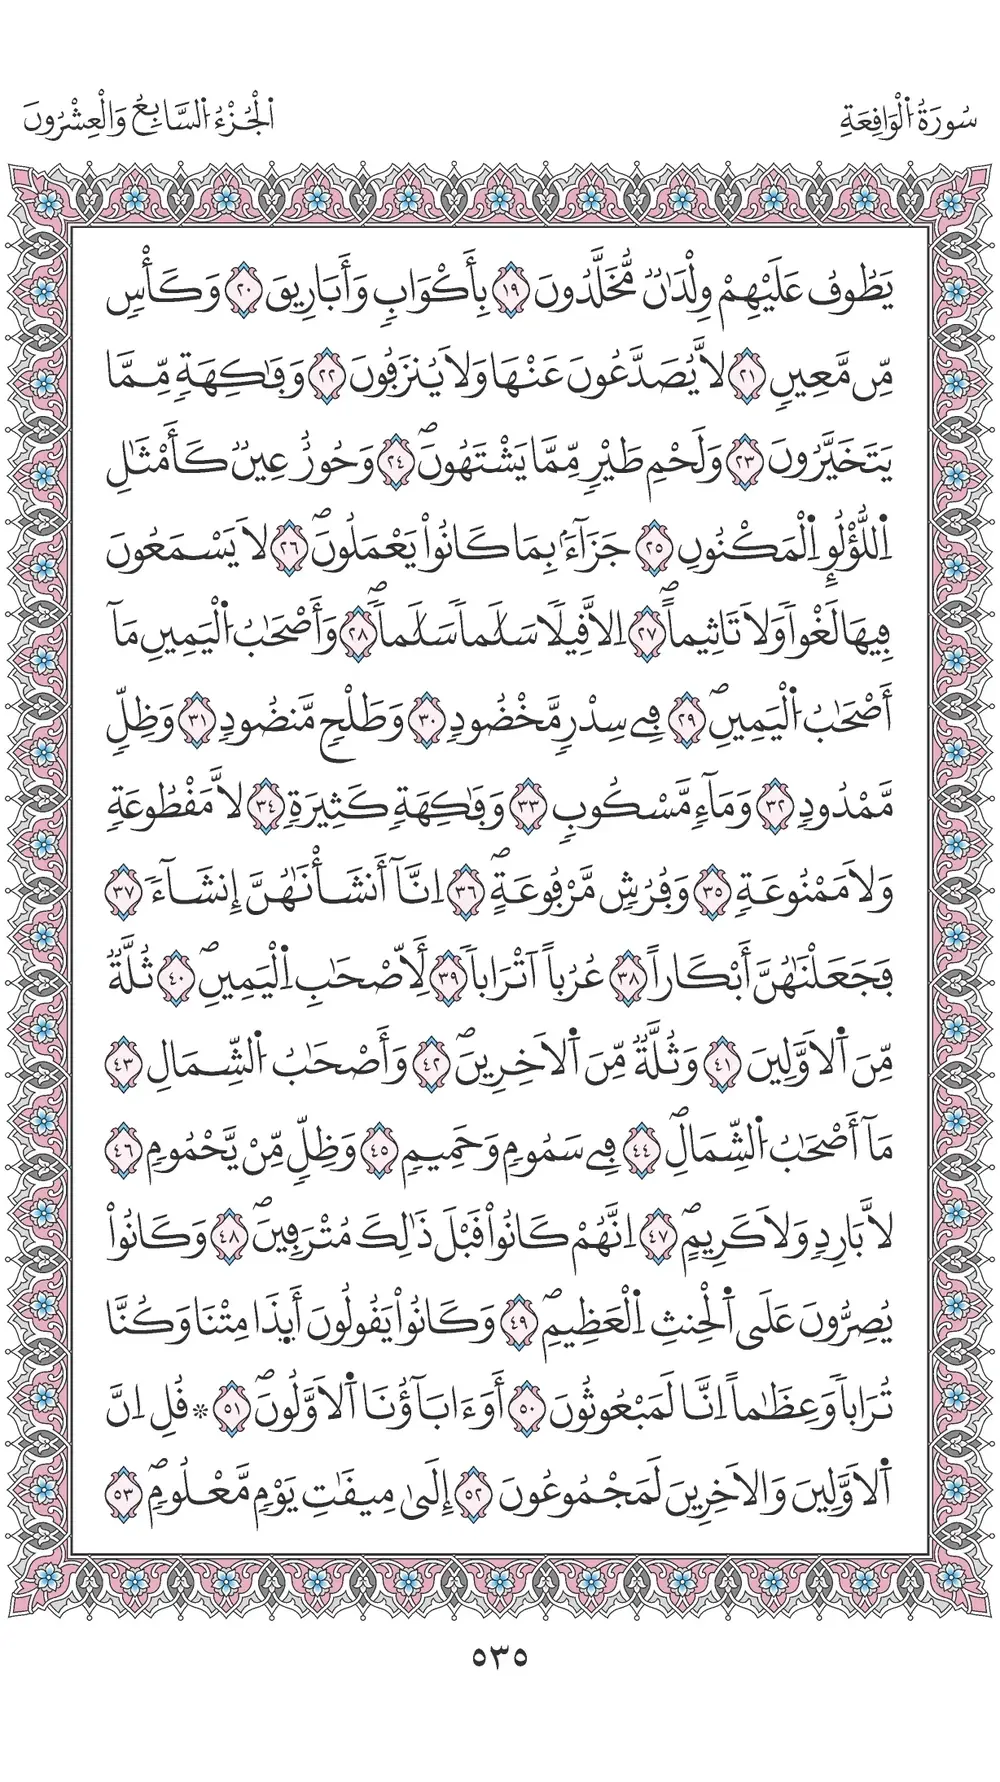 سُورَةُ اُ۬لْوَاقِعَةِ
اَ۬لْجُزْءُ اُ۬لسَّابِعُ وَالْعِشْرُونَ
يَطُوفُ عَلَيْهِمْ وِلْدَٰنٞ مُّخَلَّدُونَ ١٩ بِأَكْوَابٖ وَأَبَارِيقَ ٢٠ وَكَأْسٖ
مِّن مَّعِينٖ ٢١ لَّا يُصَدَّعُونَ عَنْهَا وَلَا يُنزَفُونَ ٢٢ وَفَٰكِهَةٖ مِّمَّا
يَتَخَيَّرُونَ ٢٣ وَلَحْمِ طَيْرٖ مِّمَّا يَشْتَهُونَۖ ٢٤ وَحُورٌ عِينٞ كَأَمْثَٰلِ
اِ۬للُّؤْلُوِٕ اِ۬لْمَكْنُونِ ٢٥ جَزَآءَۢ بِمَا كَانُواْ يَعْمَلُونَۖ ٢٦ لَا يَسْمَعُونَ
فِيهَا لَغْواٗ وَلَا تَاثِيماًۖ ٢٧ اِلَّا قِيلاٗ سَلَٰماٗ سَلَٰماٗۖ ٢٨ وَأَصْحَٰبُ اُ۬لْيَمِينِ مَآ
أَصْحَٰبُ اُ۬لْيَمِينِۖ ٢٩ فِے سِدْرٖ مَّخْضُودٖ ٣٠ وَطَلْحٖ مَّنضُودٖ ٣١ وَظِلّٖ
مَّمْدُودٖ ٣٢ وَمَآءٖ مَّسْكُوبٖ ٣٣ وَفَٰكِهَةٖ كَثِيرَةٖ ٣٤ لَّا مَقْطُوعَةٖ
وَلَا مَمْنُوعَةٖ ٣٥ وَفُرُشٖ مَّرْفُوعَةٍۖ ٣٦ اِنَّآ أَنشَأْنَٰهُنَّ إِنشَآءٗ ٣٧
فَجَعَلْنَٰهُنَّ أَبْكَاراً ٣٨ عُرُباً اَتْرَاباٗ ٣٩ لِّأَصْحَٰبِ اِ۬لْيَمِينِۖ ٤٠ ثُلَّةٞ
مِّنَ اَ۬لَاوَّلِينَ ٤١ وَثُلَّةٞ مِّنَ اَ۬لَاخِرِينَۖ ٤٢ وَأَصْحَٰبُ اُ۬لشِّمَالِ ٤٣
مَآ أَصْحَٰبُ اُ۬لشِّمَالِۖ ٤٤ فِے سَمُومٖ وَحَمِيمٖ ٤٥ وَظِلّٖ مِّنْ يَّحْمُومٖ ٤٦
لَّا بَارِدٖ وَلَا كَرِيمٍۖ ٤٧ اِنَّهُمْ كَانُواْ قَبْلَ ذَٰلِكَ مُتْرَفِينَۖ ٤٨ وَكَانُواْ
يُصِرُّونَ عَلَى اَ۬لْحِنثِ اِ۬لْعَظِيمِۖ ٤٩ وَكَانُواْ يَقُولُونَ أَئِذَا مِتْنَا وَكُنَّا
تُرَاباٗ وَعِظَٰماً اِنَّا لَمَبْعُوثُونَ ٥٠ أَوَءَابَآؤُنَا اَ۬لَاوَّلُونَۖ ٥١ * قُلِ اِنَّ
اَ۬لَاوَّلِينَ وَالَاخِرِينَ لَمَجْمُوعُونَ ٥٢ إِلَىٰ مِيقَٰتِ يَوْمٖ مَّعْلُومٖۖ ٥٣
٥٣٥